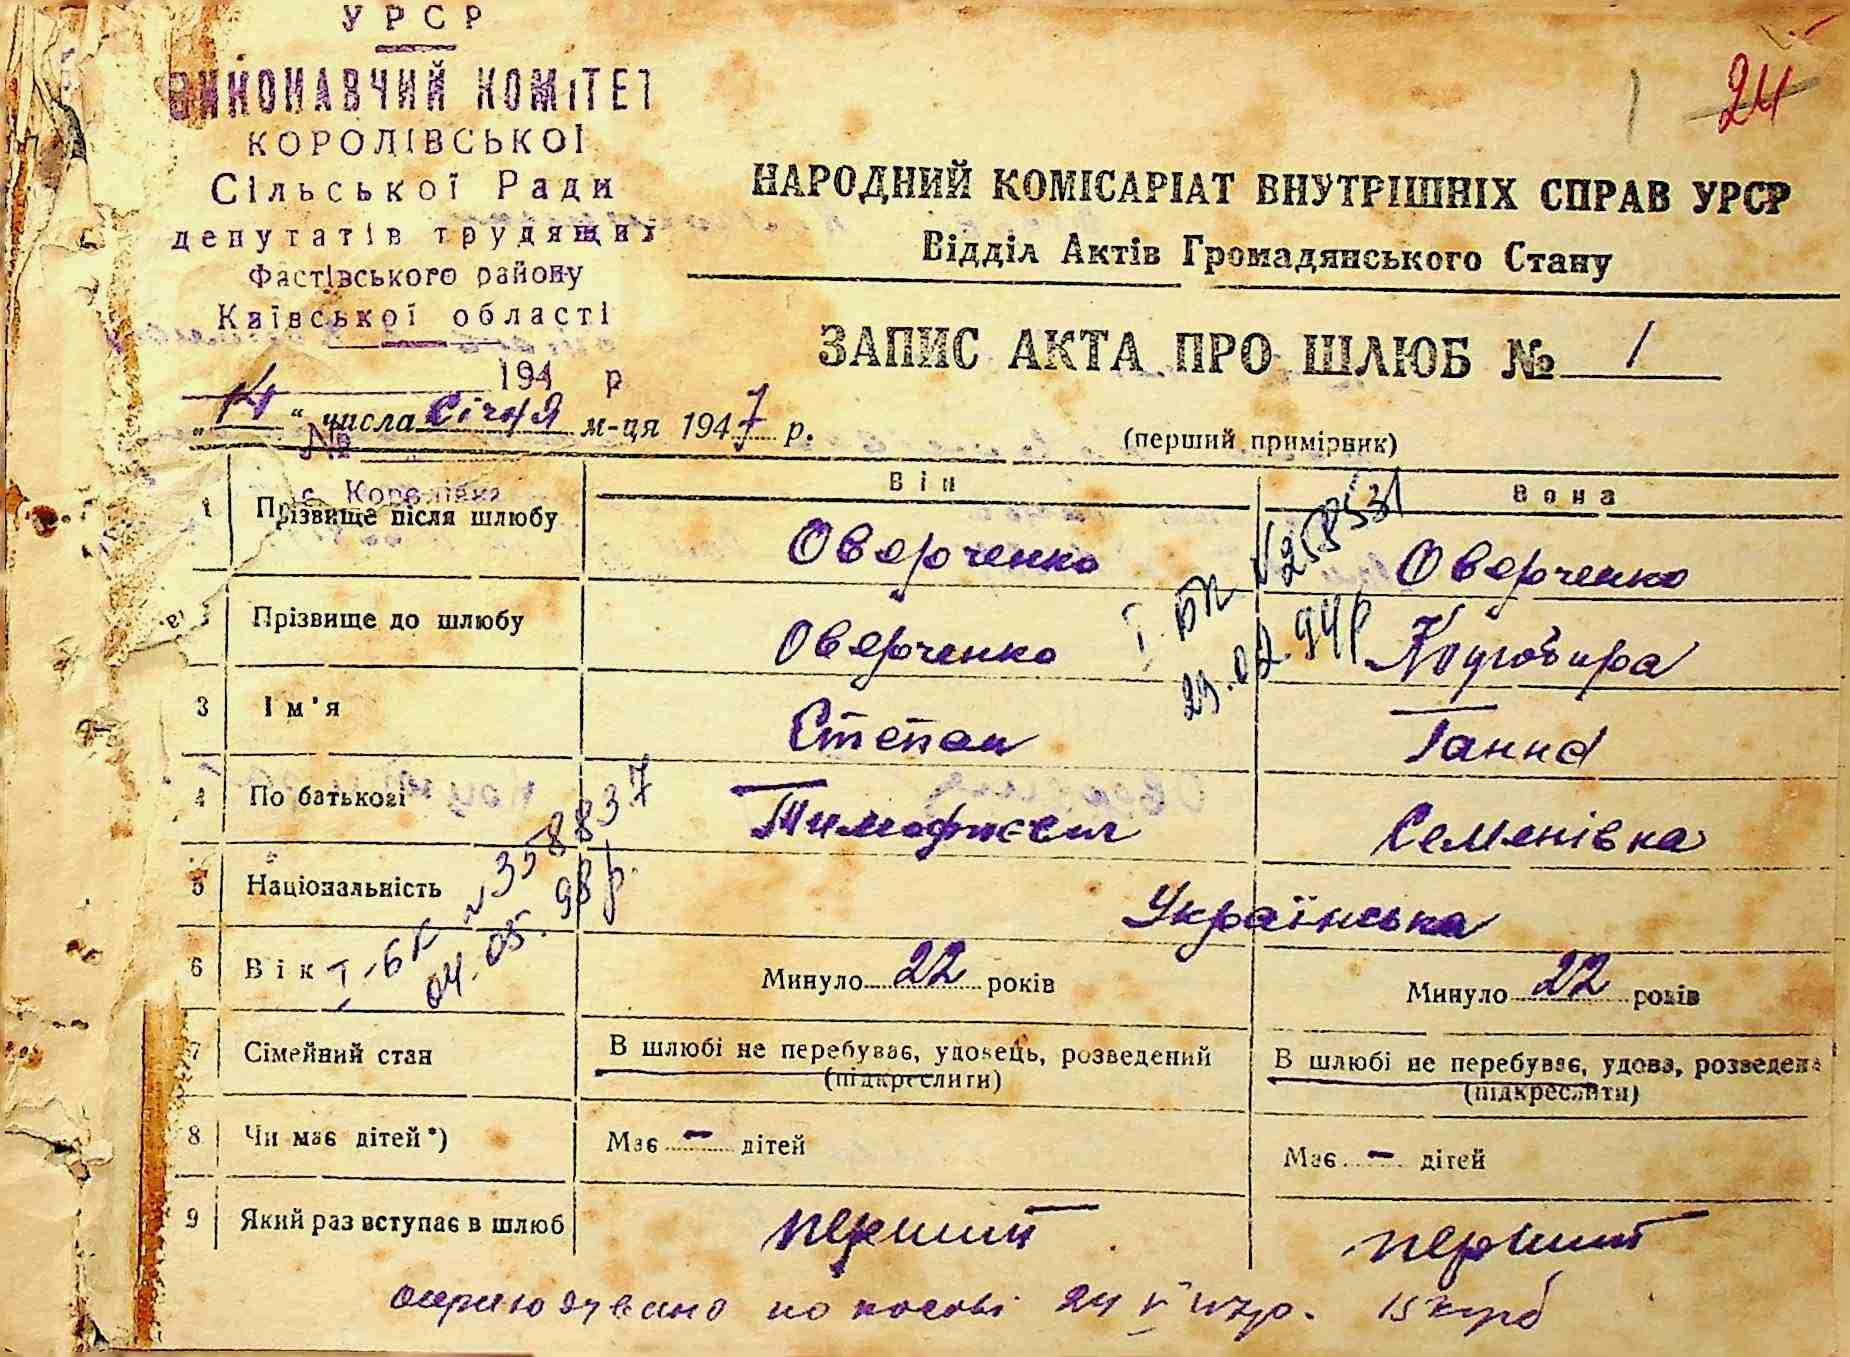 УРСР
ВИКОНАВЧИЙ КОМІТЕТ
КОРОЛІВСЬКОІ
Сільської Ради
депутатів трудящих
Фастівського району
Київської області
194 р
№
с. Королівка
1 24
НАРОДНИЙ КОМІСАРІАТ ВНУТРІШНІХ СПРАВ УРСР
Відділ Актів Громадянського Стану
ЗАПИС АКТА ПРО ШЛЮБ № 1
„14“ числа Січня м-ця 1947 р.
(перший примірник)
Він Вона
1 Прізвище після шлюбу Оверченко Оверченко
Прізвище до шлюбу Оверченко
І-БК №258531
29.04.94р
3 Ім'я Степан Ганна
4 По батькові Тимофієвич Семенівна
5 Національність Українська
І-БК №358837
04.05.98р.
6 Вік Минуло 22 років Минуло 22 років
7 Сімейний стан В шлюбі не перебуває, удовець, розведений (підкреслити) В шлюбі не перебуває, удова, розведена (підкреслити)
8 Чи має дітей*) Має - дітей Має - дітей
9 Який раз вступає в шлюб перший перший
24 V 47р. 15 крб